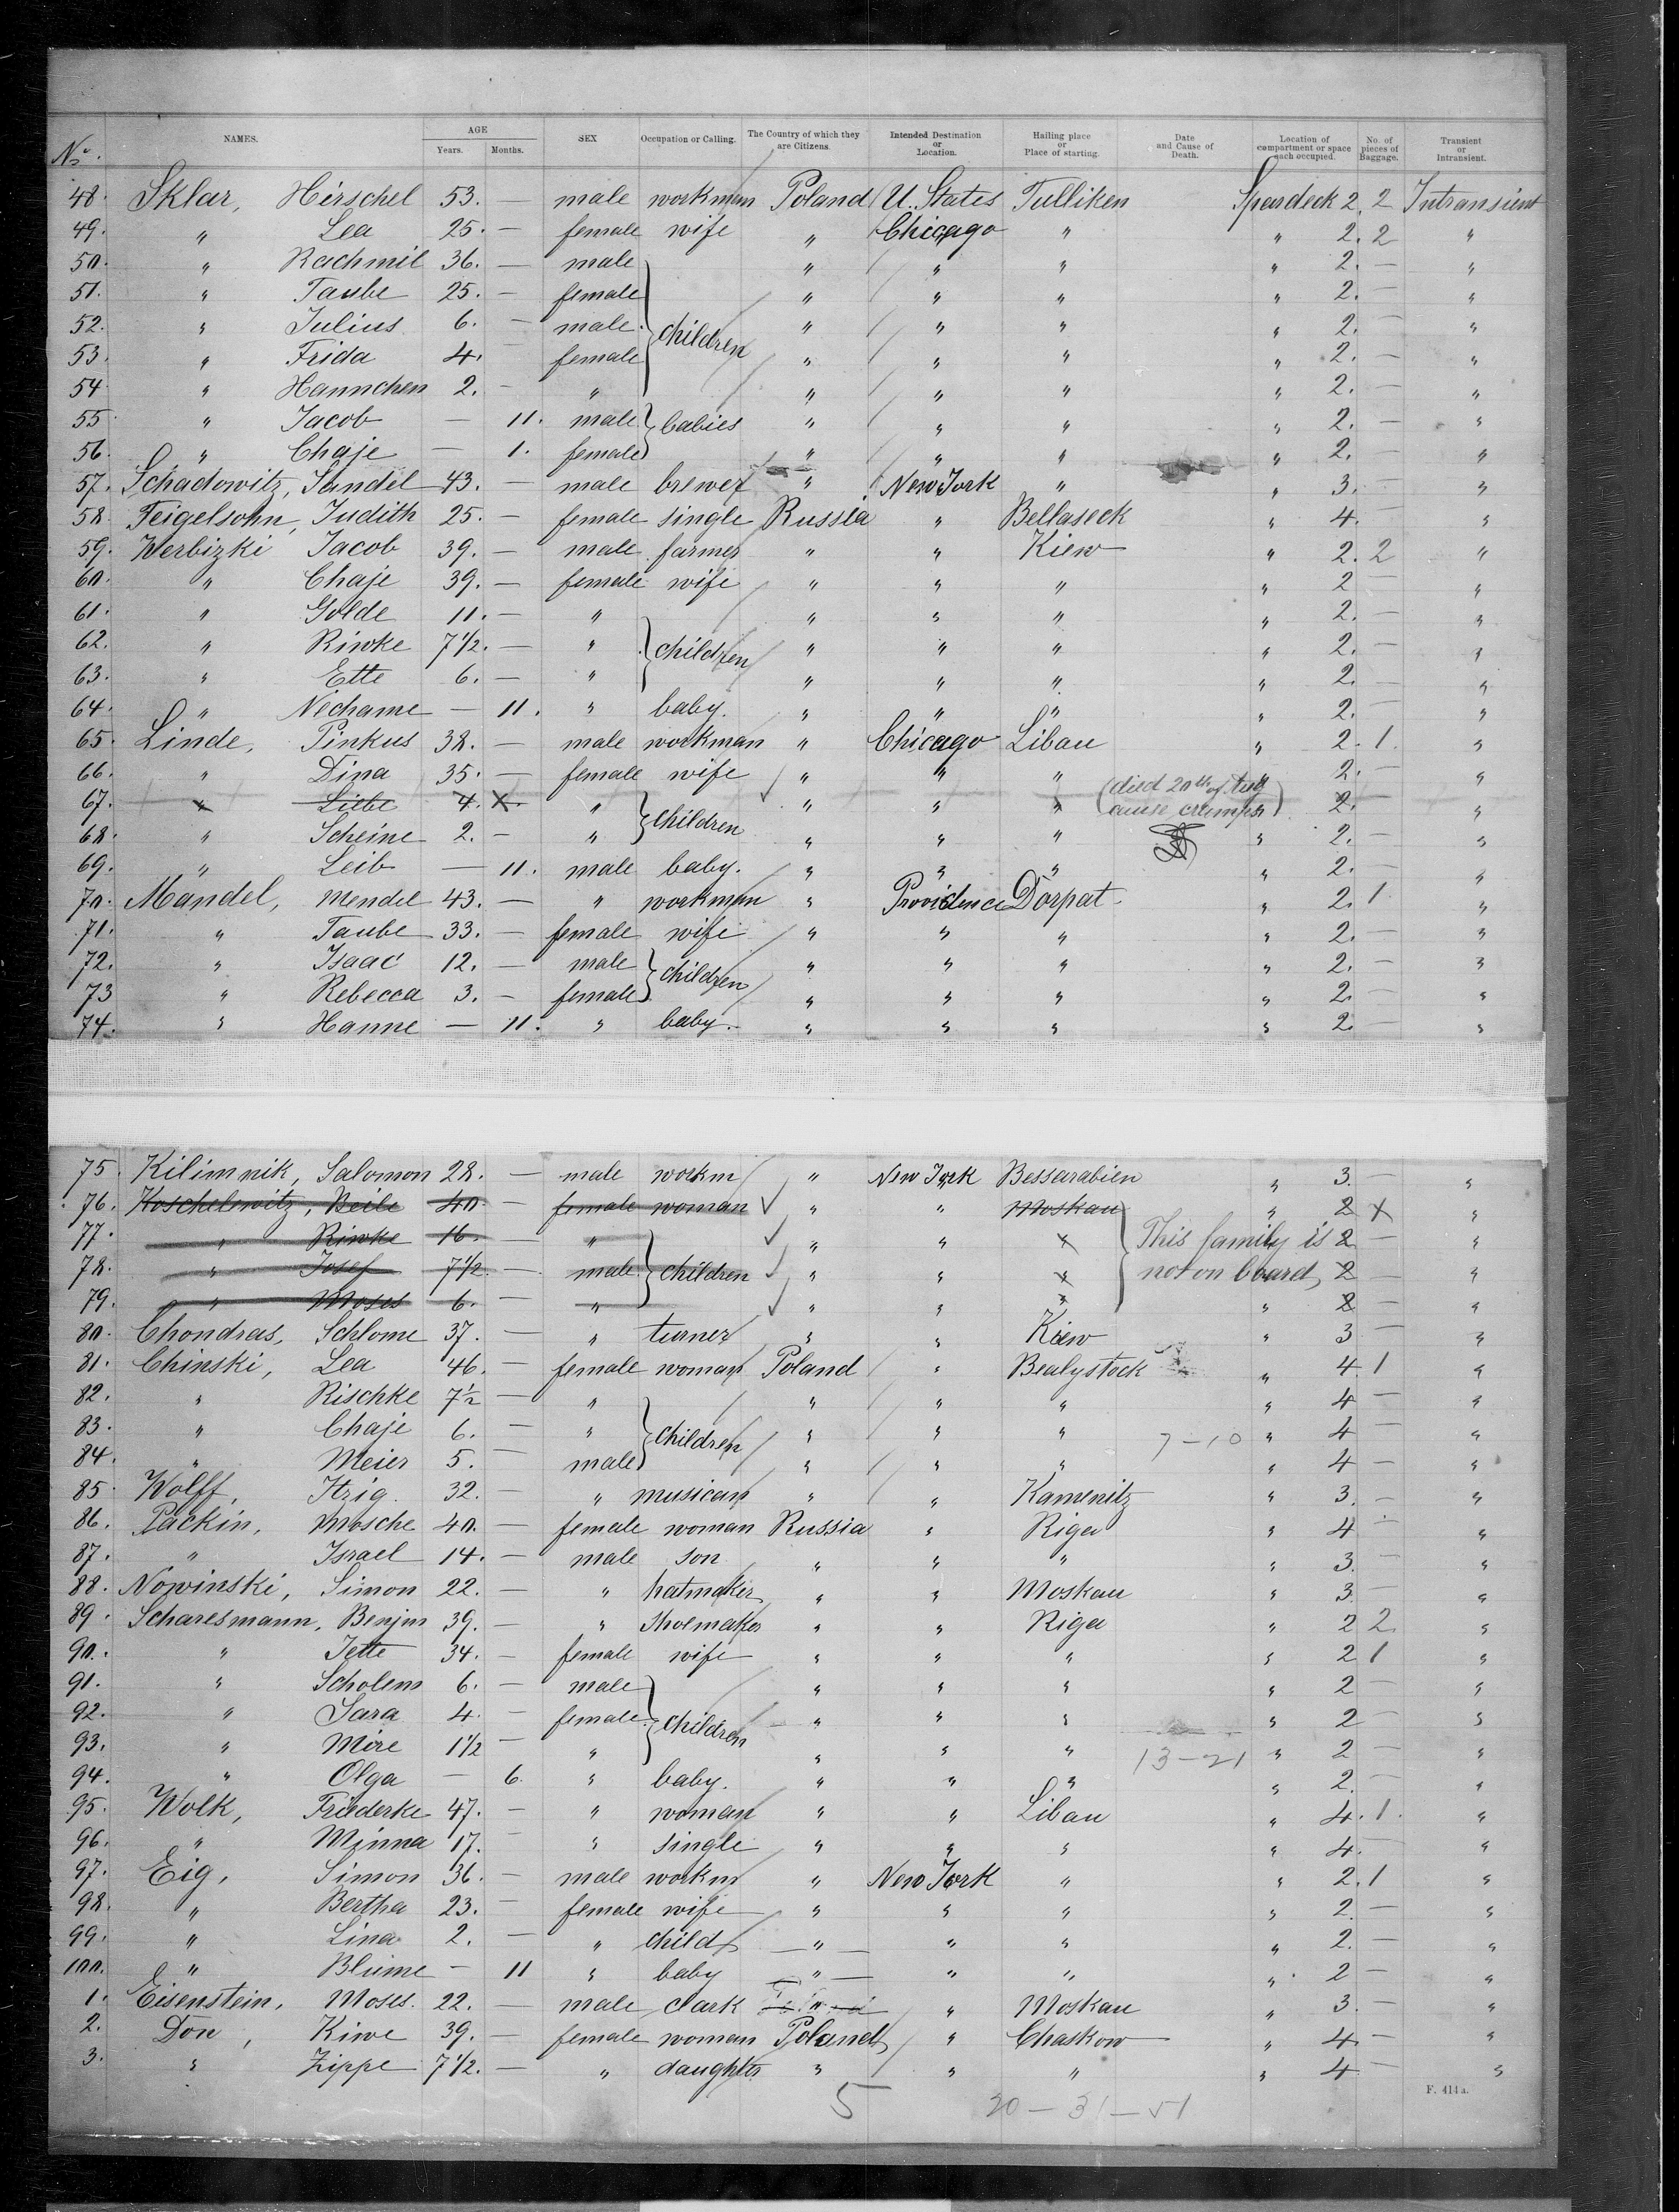 No. NAMES. AGE Years. Months. SEX Occupation or Calling. The Country of which they are Citizens. Intended Destination or Location. Hailing place or Place of starting. Date and Cause of Death. Location of compartment or space each occupied. No. of pieces of Baggage. Transient or Intransient.
48. Sklar, Hirschel 53. — male workman Poland U. States Tulliken Spardeck 2. 2 Intransient
49. " Lea 25. — female wife " Chicago " " 2. 2 "
50. " Rachmil 36. — male " " " " 2. — "
51. " Taube 25. — female " " " " 2. — "
52. " Julius 6. — male children " " " " 2. — "
53. " Frida 4. — female " " " " 2. — "
54 " Hannchen 2. — " " " " " 2. — "
55 " Jacob — 11. male babies " " " " 2. — "
56. " Chaje — 1. female " " " " 2. — "
57. Schadowitz, Sandel 43. — male brewer " New York " " 3. — "
58 Feigelsohn, Judith 25. — female single Russia " Bellaseck " 4. — "
59. Werbizki Jacob 39. — male farmer " " Kiew " 2. 2 "
60. " Chaje 39. — female wife " " " " 2 — "
61. " Golde 11. — " " " " " 2. — "
62. " Riwke 7 1/2. — " children " " " " 2. — "
63. " Ette 6. — " " " " " 2. — "
64. " Nechame — 11. " baby. " " " " 2. — "
65. Linde, Pinkus 38. — male workman " Chicago Libau " 2. 1. "
66. " Dina 35. — female wife " " " " 2. — "
67. " Liebe 4. X. " children " " " (died 20th of cause cramps) " 2. — "
68. " Scheine 2. — " " " " " 2. — "
69. " Leib — 11. male baby. " " " " 2. — "
70. Mandel, Mendel 43. — " workman " Providence Dorpat " 2. 1 "
71. " Taube 33. — female wife " " " " 2. — "
72. " Isaac 12. — male children " " " " 2. — "
73 " Rebecca 3. — female " " " " 2. — "
74. " Hanne — 11. " baby. " " " " 2. — "
75. Kilimnik, Salomon 28. — male workm " New York Bessarabien " 3. — "
76. Koschelewitz, Beile 40. female woman " " Moskau " 2 X "
77. " Riwke 16. — " " " " This family is 2 — "
78. " Josef 7 1/2. — male children " " " not on board, 2 — "
79. " Moses 6. — " " " " " 2 — "
80. Chondras, Schlome 37. — " turner " " Kiew " 3 — "
81. Chinski, Lea 46. — female woman Poland " Bealystock " 4. 1 "
82. " Rischke 7 1/2 — " " " " " 4 — "
83. " Chaje 6. — " children " " " 7-10 " 4 — "
84. " Meier 5. — male " " " " 4 — "
85. Wolff, Itzig. 32. — " musican " " Kamenitz " 3. — "
86. Packin, Mosche 40. — female woman Russia " Riga " 4 — "
87. " Israel 14. — male son " " " " 3. — "
88. Nowinski, Simon 22. — " hatmaker " " Moskau " 3 — "
89. Scharesmann, Benjm 39. — " shoemaker " " Riga " 2 2. "
90. " Jette 34. — female wife " " " " 2 1 "
91. " Scholem 6. — male " " " " 2 — "
92. " Sara 4. — female children " " " " 2 — "
93. " Mire 1 1/2 — " " " " 13-21 " 2 — "
94. " Olga — 6. " baby. " " " " 2. — "
95. Wolk, Friederke 47. — " woman " " Libau " 4. 1. "
96. " Minna 17. — " single " " " " 4. — "
97. Eig, Simon 36. — male workm " New York " " 2. 1 "
98. " Bertha 23. — female wife " " " " 2. — "
99. " Lina 2. — " child " " " " 2. — "
100. " Blume — 11 " baby " " " " 2 — "
1. Eisenstein, Moses. 22. — male clark " Moskau " 3. — "
2. Don, Kiwe 39. — female woman Poland " Chaskow " 4. — "
3. " Zippe 7 1/2. — " daughter " " " " 4 — "
F. 414a.
5 20-31-51